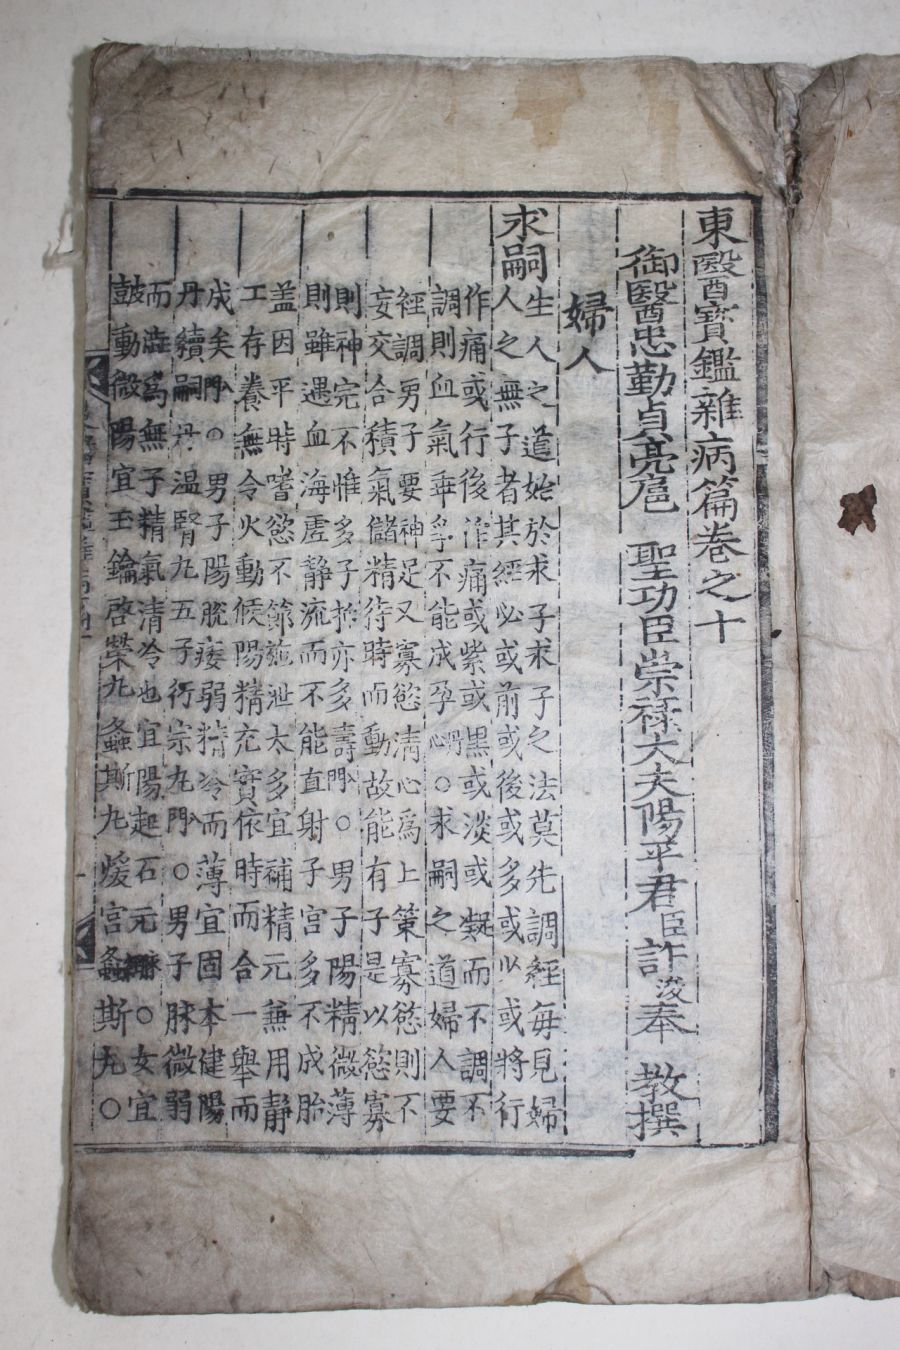 東醫寶鑑雜病篇卷之十
御醫忠勤貞亮扈 聖功臣崇祿大夫陽平君臣許浚奉 敎撰
婦人
求嗣
生人之道始於求子求子之法莫先調經每見婦
人之無子者其經必或前或後或多或少或將行
作痛或行後作痛或紫或黑或淡或凝而不調不
調則血氣乖爭不能成孕○求嗣之道婦人要
經調男子要神足又寡慾淸心爲上策寡慾則不
妄交合積氣儲精待時而動故能有子是以慾寡
則神完不惟多子抑亦多壽○男子陽精微薄
則雖遇血海虛靜流而不能直射子宮多不成胎
盖因平時嗜慾不節施泄太多宜補精元兼用靜
工存養無令火動候陽精充實依時而合一擧而
成矣○男子陽脫痿弱精冷而薄宜固本健陽
丹續嗣丹溫腎丸五子衍宗丸○男子脉微弱
而澁爲無子精氣淸冷也宜陽起石元○女宜
鼓動微陽宜玉鑰啓榮丸螽斯丸煖宮螽斯丸○